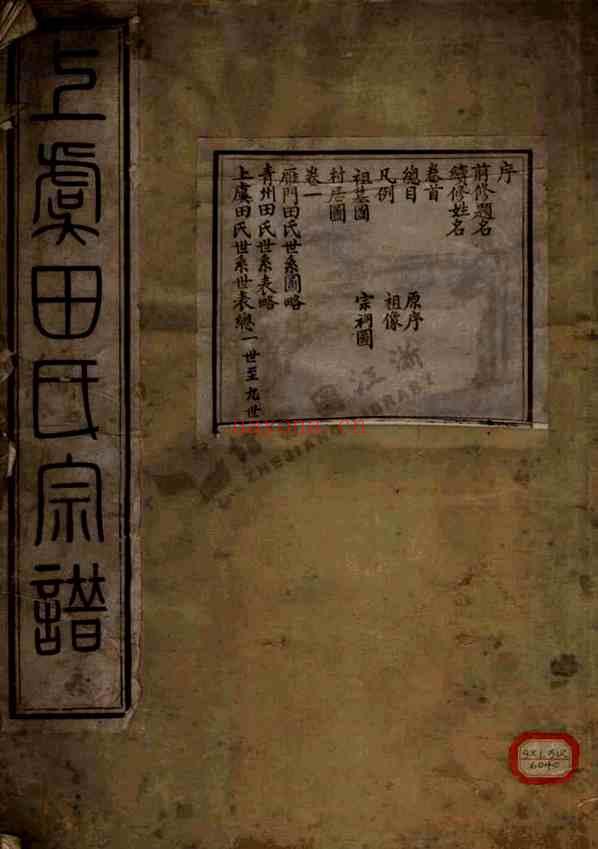 上虞田氏宗譜
序
前修題名
續修姓名
卷首
總目 原序
凡例 祖像
祖墓圖 宗祠圖
村居圖
卷一
雁門田氏世系圖略
青州田氏世系表略
上虞田氏世系世表總一世至九世
浙江圖書館
ZHEJIANG LIBRARY
6040